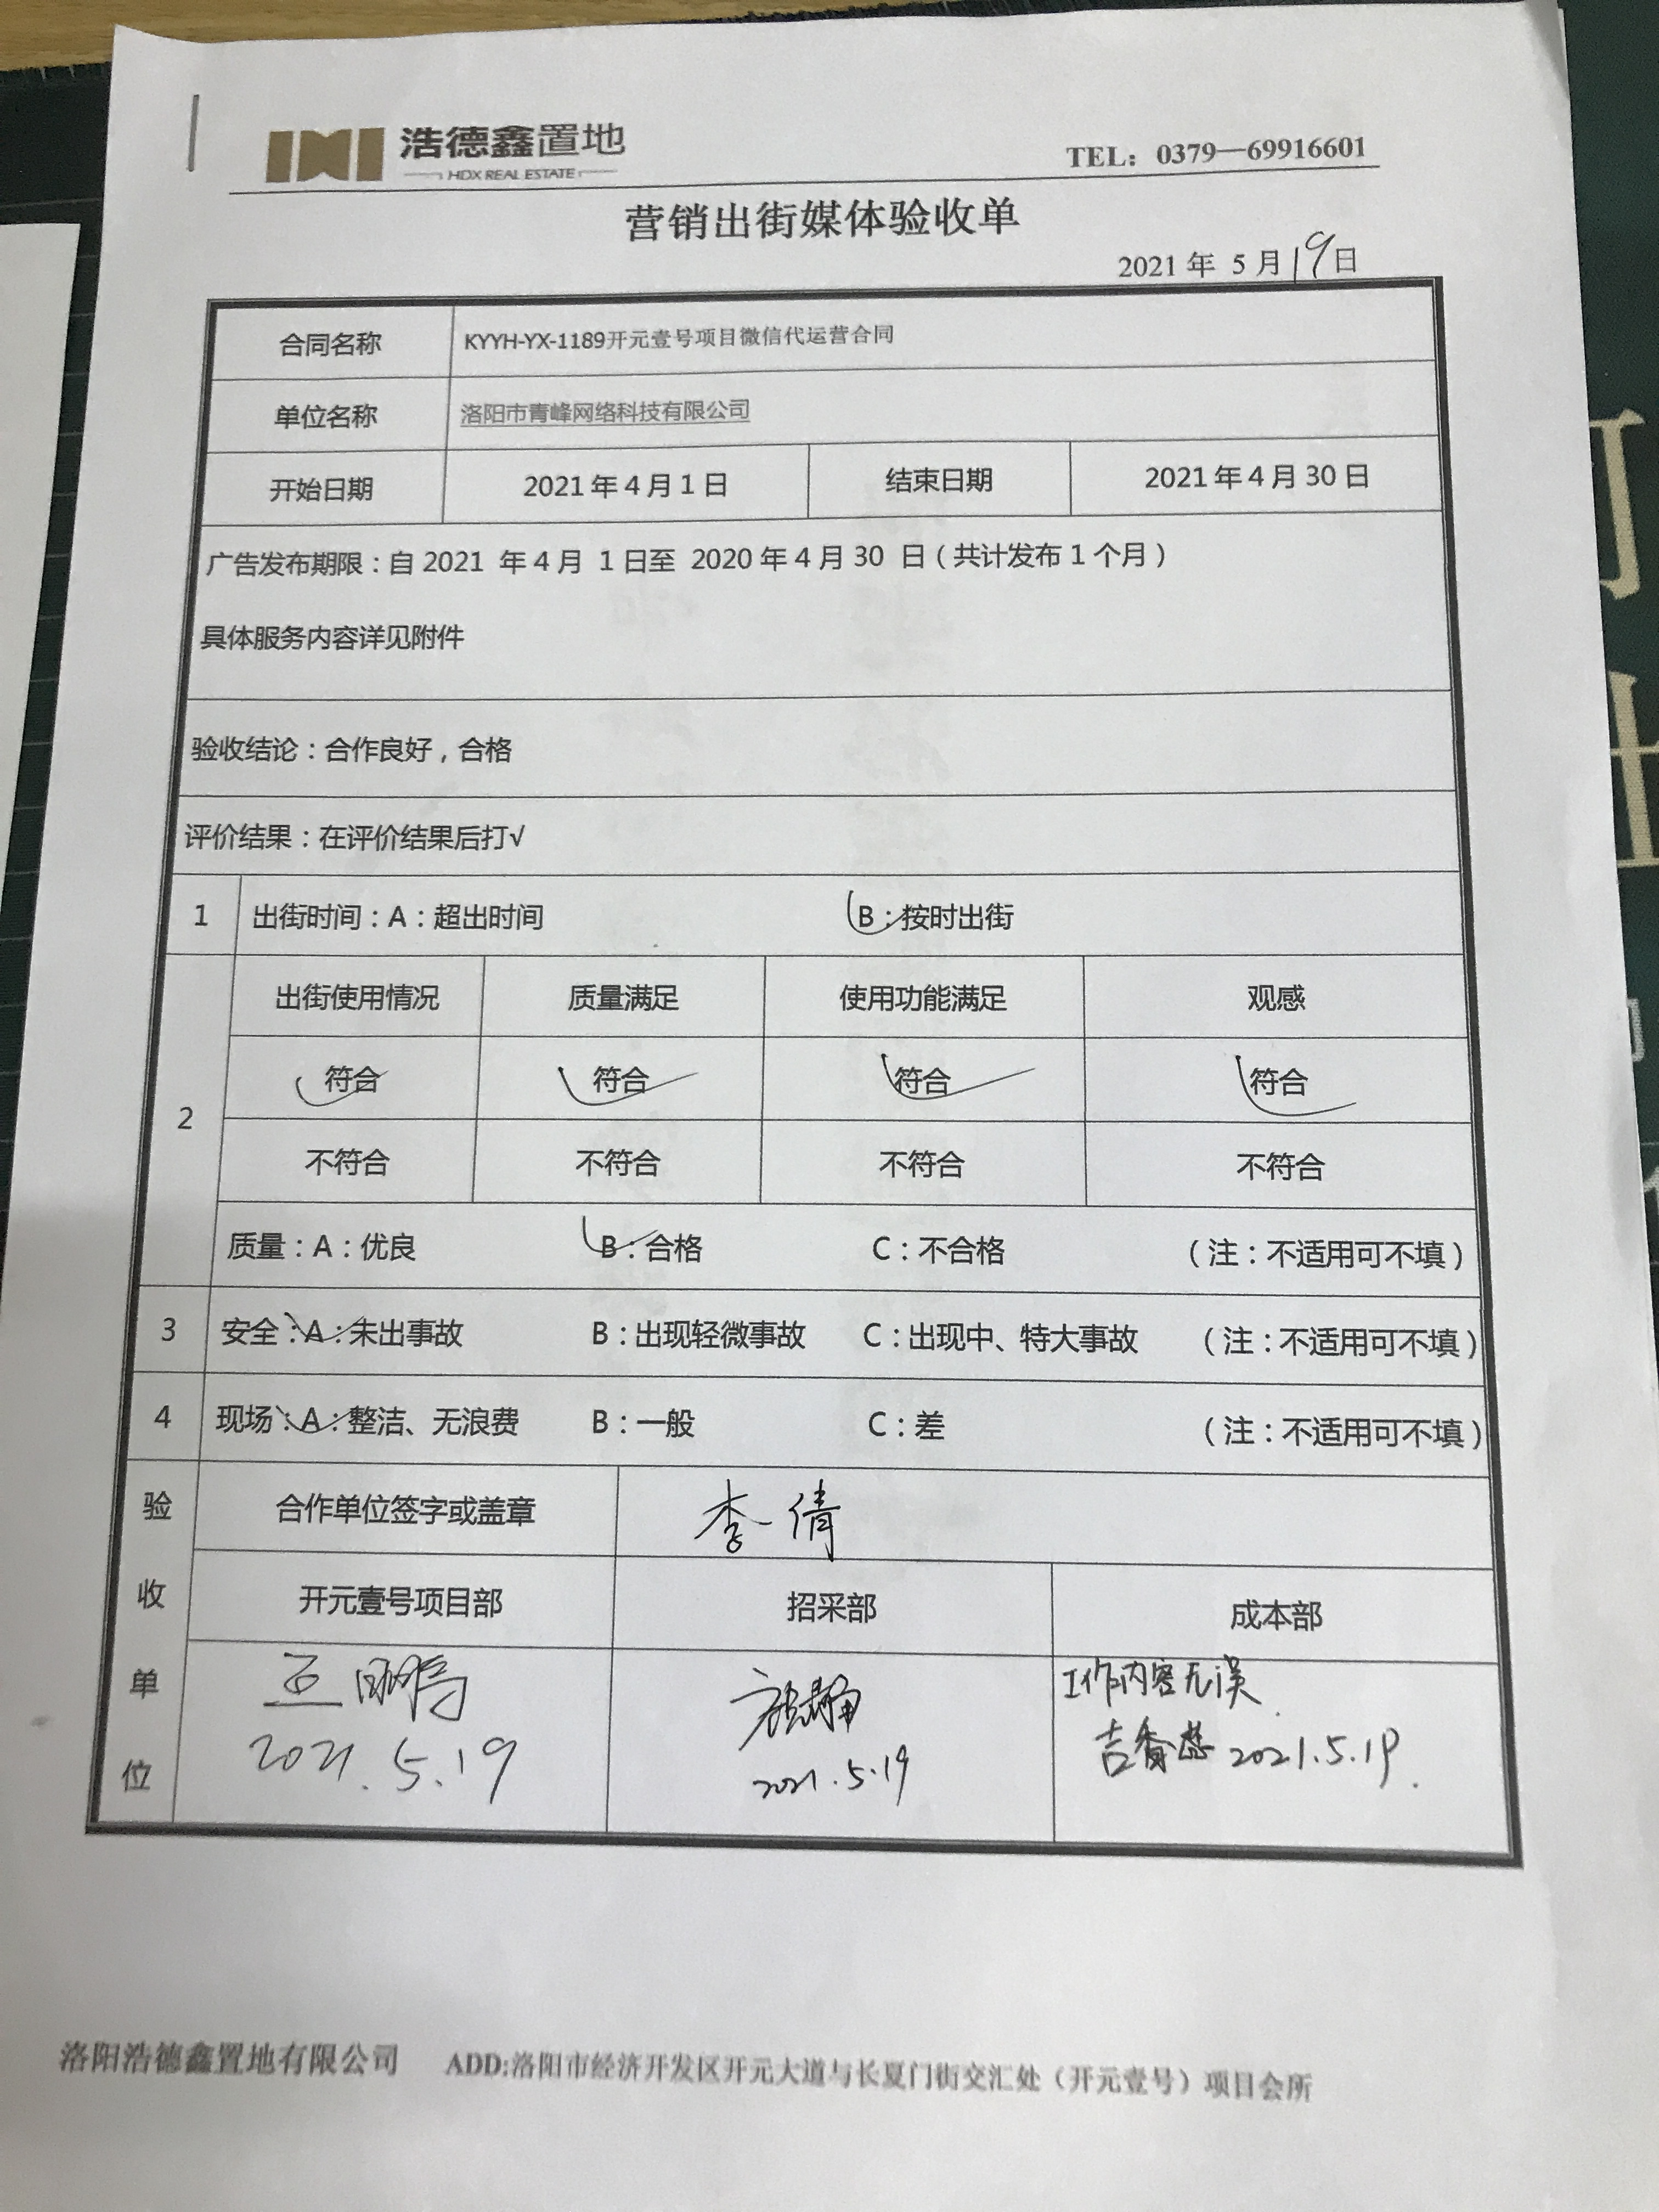 浩德鑫置地
HDX REAL ESTATE
TEL：0379—69916601
营销出街媒体验收单
2021 年 5 月 19 日
合同名称 KYYH-YX-1189开元壹号项目微信代运营合同
单位名称 洛阳市青峰网络科技有限公司
开始日期 2021 年 4 月 1 日 结束日期 2021 年 4 月 30 日
广告发布期限：自 2021 年 4 月 1 日至 2020 年 4 月 30 日（共计发布 1 个月）
具体服务内容详见附件
验收结论：合作良好，合格
评价结果：在评价结果后打√
1 出街时间：A：超出时间 B：按时出街
2 出街使用情况 质量满足 使用功能满足 观感
符合 符合 符合 符合
不符合 不符合 不符合 不符合
质量：A：优良 B：合格 C：不合格 （注：不适用可不填）
3 安全：A：未出事故 B：出现轻微事故 C：出现中、特大事故 （注：不适用可不填）
4 现场：A：整洁、无浪费 B：一般 C：差 （注：不适用可不填）
验收单位 合作单位签字或盖章 李倩
开元壹号项目部 招采部 成本部
工作内容无误
2021.5.19 2021.5.19 2021.5.19.
洛阳浩德鑫置地有限公司 ADD:洛阳市经济开发区开元大道与长夏门街交汇处（开元壹号）项目会所